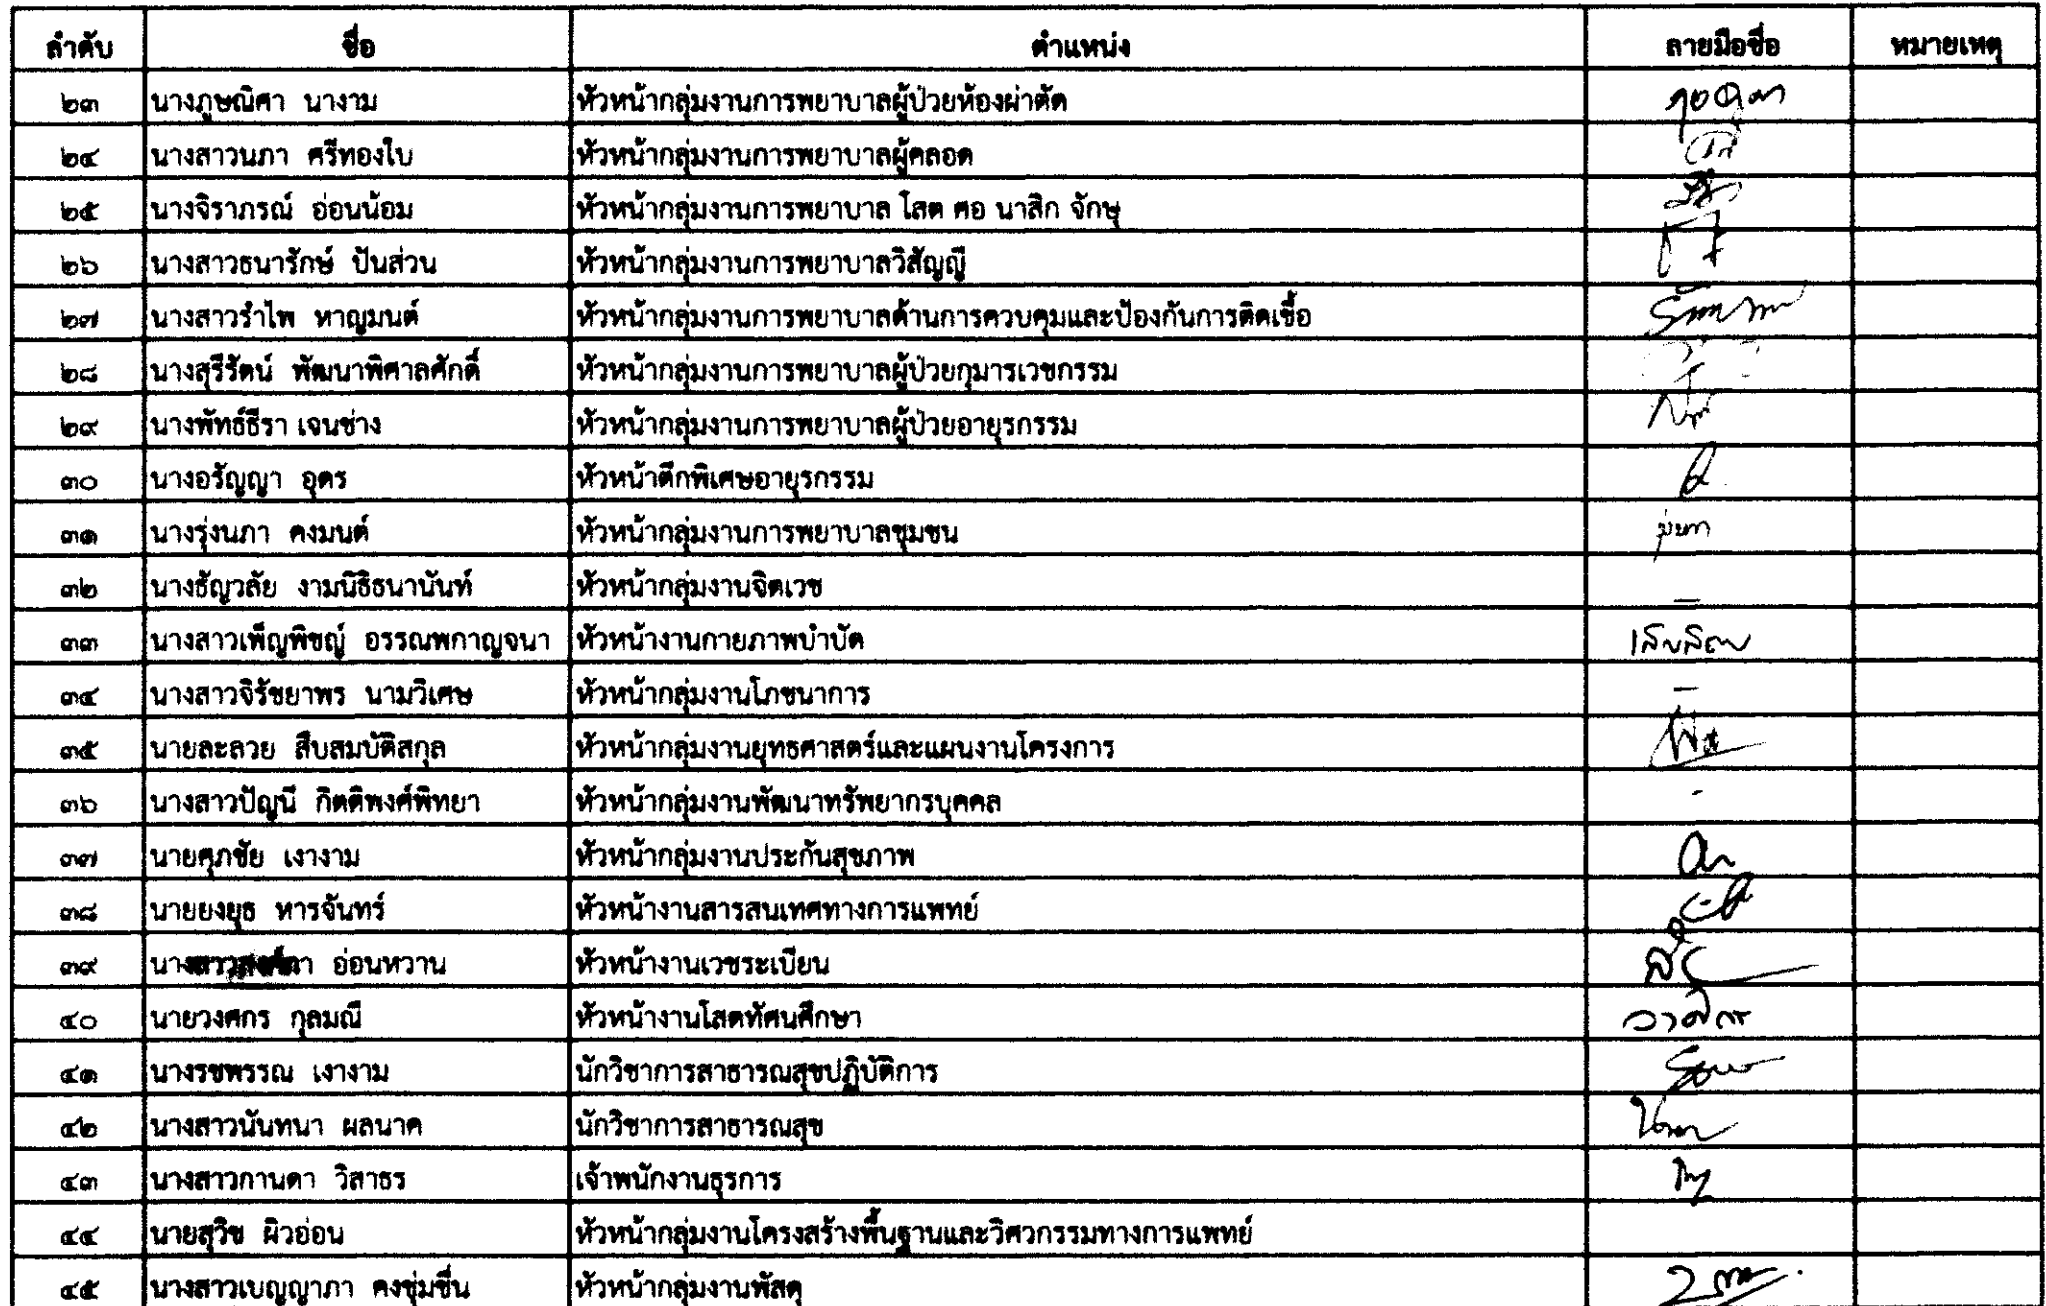 ลำดับ ชื่อ ตำแหน่ง ลายมือชื่อ หมายเหตุ
๒๓ นางภูษณิศา นางาม หัวหน้ากลุ่มงานการพยาบาลผู้ป่วยห้องผ่าตัด
๒๔ นางสาวนภา ศรีทองใบ หัวหน้ากลุ่มงานการพยาบาลผู้คลอด
๒๕ นางจิราภรณ์ อ่อนน้อม หัวหน้ากลุ่มงานการพยาบาล โสต ศอ นาสิก จักษุ
๒๖ นางสาวธนารักษ์ ปันส่วน หัวหน้ากลุ่มงานการพยาบาลวิสัญญี
๒๗ นางสาวรำไพ หาญมนต์ หัวหน้ากลุ่มงานการพยาบาลด้านการควบคุมและป้องกันการติดเชื้อ
๒๘ นางสุรีรัตน์ พัฒนาพิศาลศักดิ์ หัวหน้ากลุ่มงานการพยาบาลผู้ป่วยกุมารเวชกรรม
๒๙ นางพัทธ์ธีรา เจนช่าง หัวหน้ากลุ่มงานการพยาบาลผู้ป่วยอายุรกรรม
๓๐ นางอรัญญา อุดร หัวหน้าตึกพิเศษอายุรกรรม
๓๑ นางรุ่งนภา คงมนต์ หัวหน้ากลุ่มงานการพยาบาลชุมชน
๓๒ นางธัญวลัย งามนิธิธนานันท์ หัวหน้ากลุ่มงานจิตเวช –
๓๓ นางสาวเพ็ญพิชญ์ อรรณพกาญจนา หัวหน้างานกายภาพบำบัด
๓๔ นางสาวจิรัชยาพร นามวิเศษ หัวหน้ากลุ่มงานโภชนาการ –
๓๕ นายละลวย สืบสมบัติสกุล หัวหน้ากลุ่มงานยุทธศาสตร์และแผนงานโครงการ
๓๖ นางสาวปัญนี กิตติพงศ์พิทยา หัวหน้ากลุ่มงานพัฒนาทรัพยากรบุคคล -
๓๗ นายศุภชัย เงางาม หัวหน้ากลุ่มงานประกันสุขภาพ
๓๘ นายยงยุธ หารจันทร์ หัวหน้างานสารสนเทศทางการแพทย์
๓๙ อ่อนหวาน หัวหน้างานเวชระเบียน
๔๐ นายวงศกร กุลมณี หัวหน้างานโสตทัศนศึกษา
๔๑ นางรชพรรณ เงางาม นักวิชาการสาธารณสุขปฏิบัติการ
๔๒ นางสาวนันทนา ผลนาค นักวิชาการสาธารณสุข
๔๓ นางสาวกานดา วิสาธร เจ้าพนักงานธุรการ
๔๔ นายสุวิช ผิวอ่อน หัวหน้ากลุ่มงานโครงสร้างพื้นฐานและวิศวกรรมทางการแพทย์
๔๕ นางสาวเบญญาภา คงชุ่มชื่น หัวหน้ากลุ่มงานพัสดุ